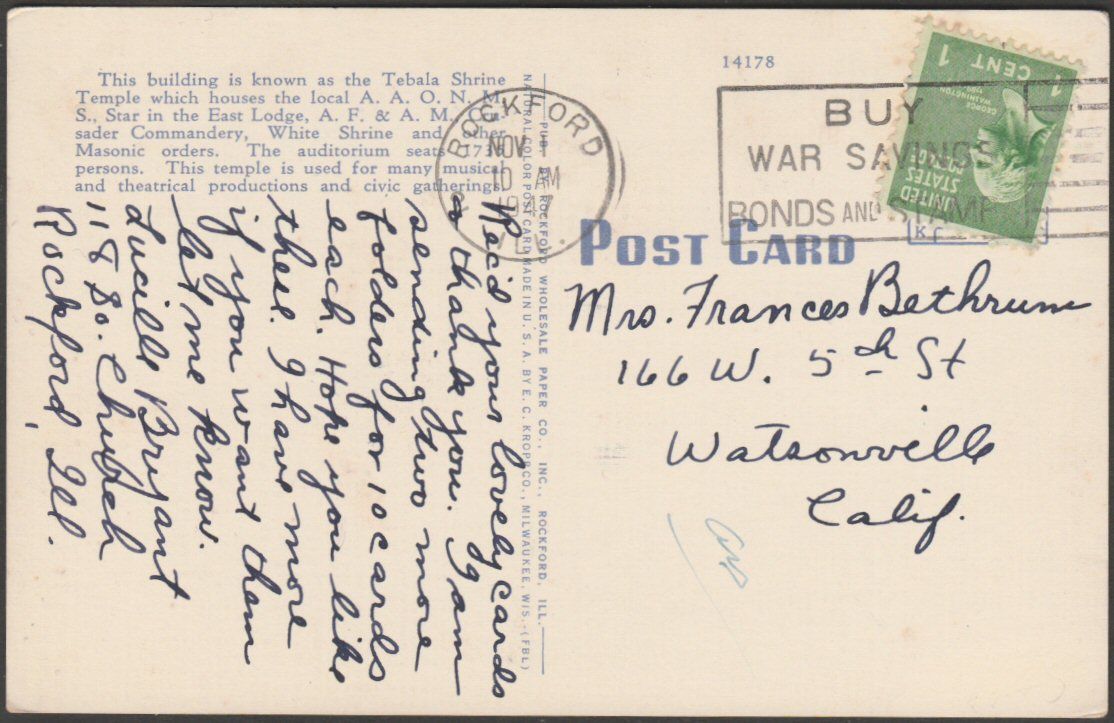 This building is known as the Tebala Shrine
Temple which houses the local A. A. O. N. M.
S., Star in the East Lodge, A. F. & A. M.,
sader Commandery, White Shrine and Other
Masonic orders. The auditorium seats
persons. This temple is used for many musical
and theatrical productions and civic gatherings.
Rec'd your lovely cards
& thank you. I am
sending two more
folders for 10 cards
each. Hope you like
these. I have more
if you want them
let me know.
Lucille Bryant
118 So. Church
Rockford, Ill.
PUB. BY ROCKFORD WHOLESALE PAPER CO., INC., ROCKFORD, ILL.
NATURAL COLOR POST CARD MADE IN U. S. A. BY E. C. KROPP CO., MILWAUKEE, WIS. (FBL)
ROCKFORD
NOV
10 AM
14178
BUY
WAR SAVINGS
BONDS AND STAMP
1 CENT 1
GEORGE
WASHINGTON
UNITED
STATES
POSTAGE
KC
POST CARD
Mrs. Frances Bethrum
166 W. 5th St
Watsonville
Calif.